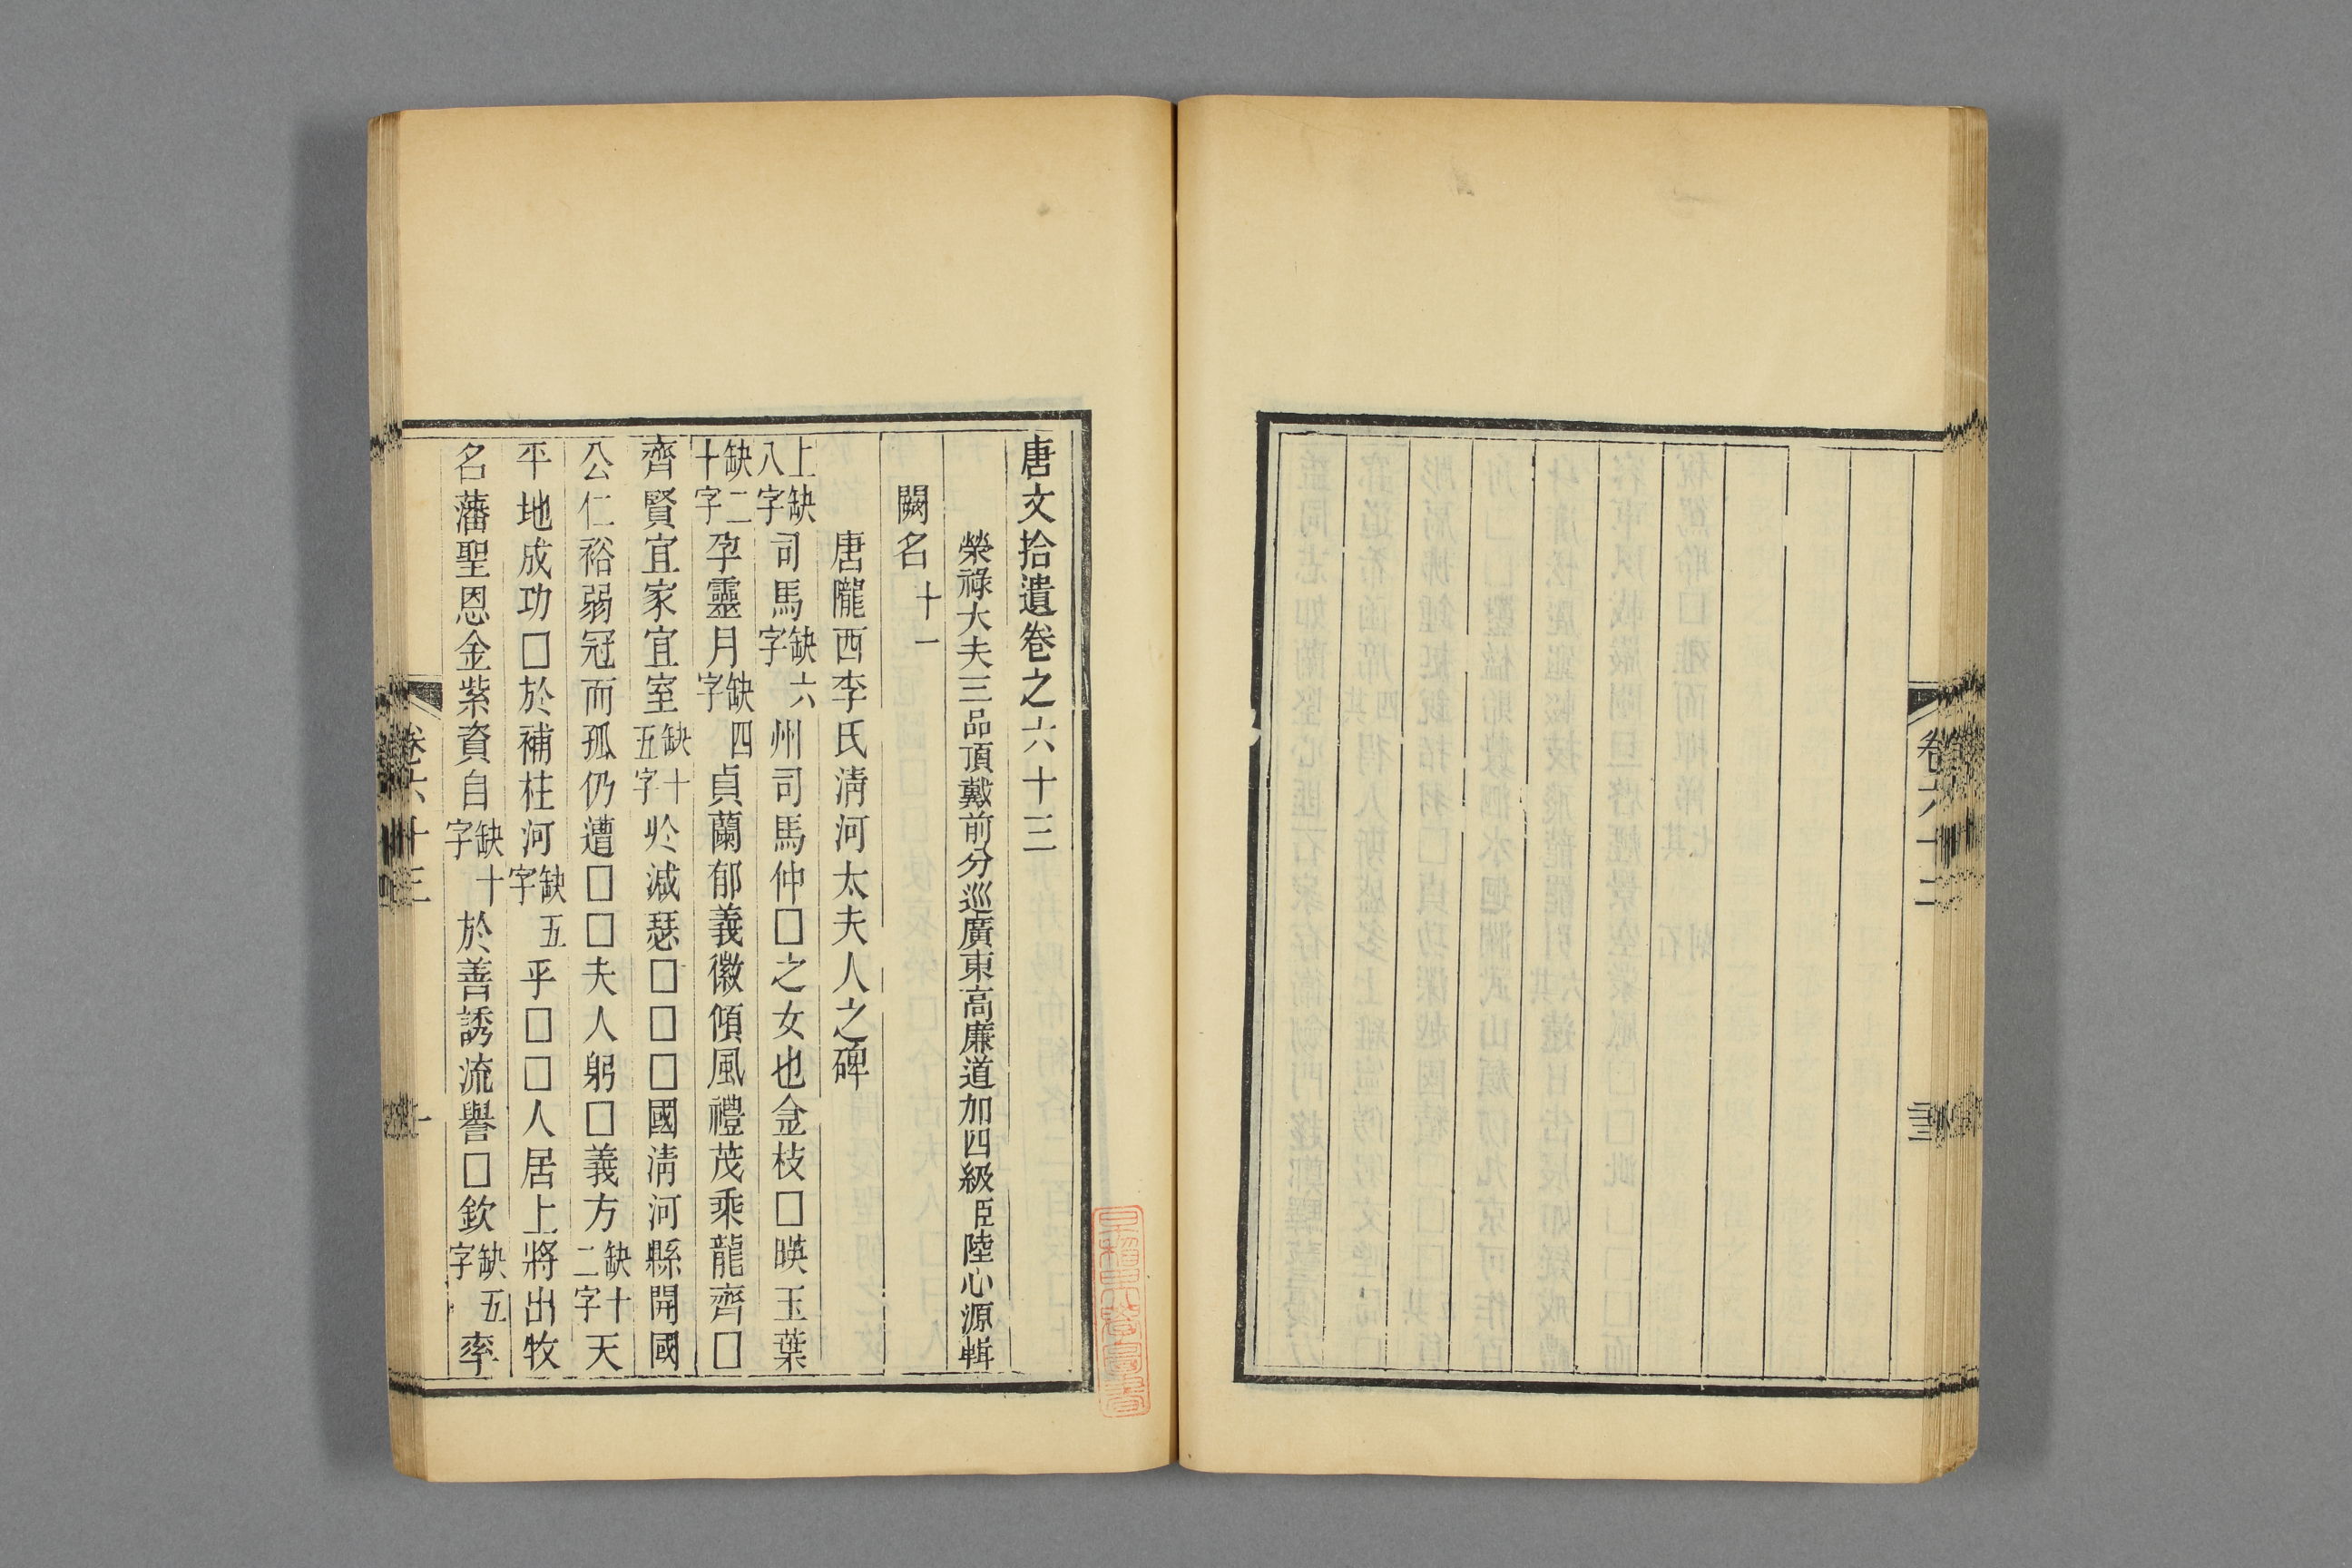 唐文拾遺卷之六十三
榮祿大夫三品頂戴前分巡廣東高廉道加四級臣陸心源輯
闕名十一
唐隴西李氏淸河太夫人之碑
上缺八字司馬缺六字州司馬仲□之女也金枝□暎玉葉
缺二十字孕靈月缺四字貞蘭郁義徽傾風禮茂乘龍齊□
齊賢宜家宜室缺十五字於減瑟□□□國淸河縣開國
公仁裕弱冠而孤仍遭□□夫人躬□義方缺十二字天
平地成功□於補柱河缺五字乎□□人居上將出牧
名藩聖恩金紫資自缺十字於善誘流譽□欽缺五字率
卷六十三
一